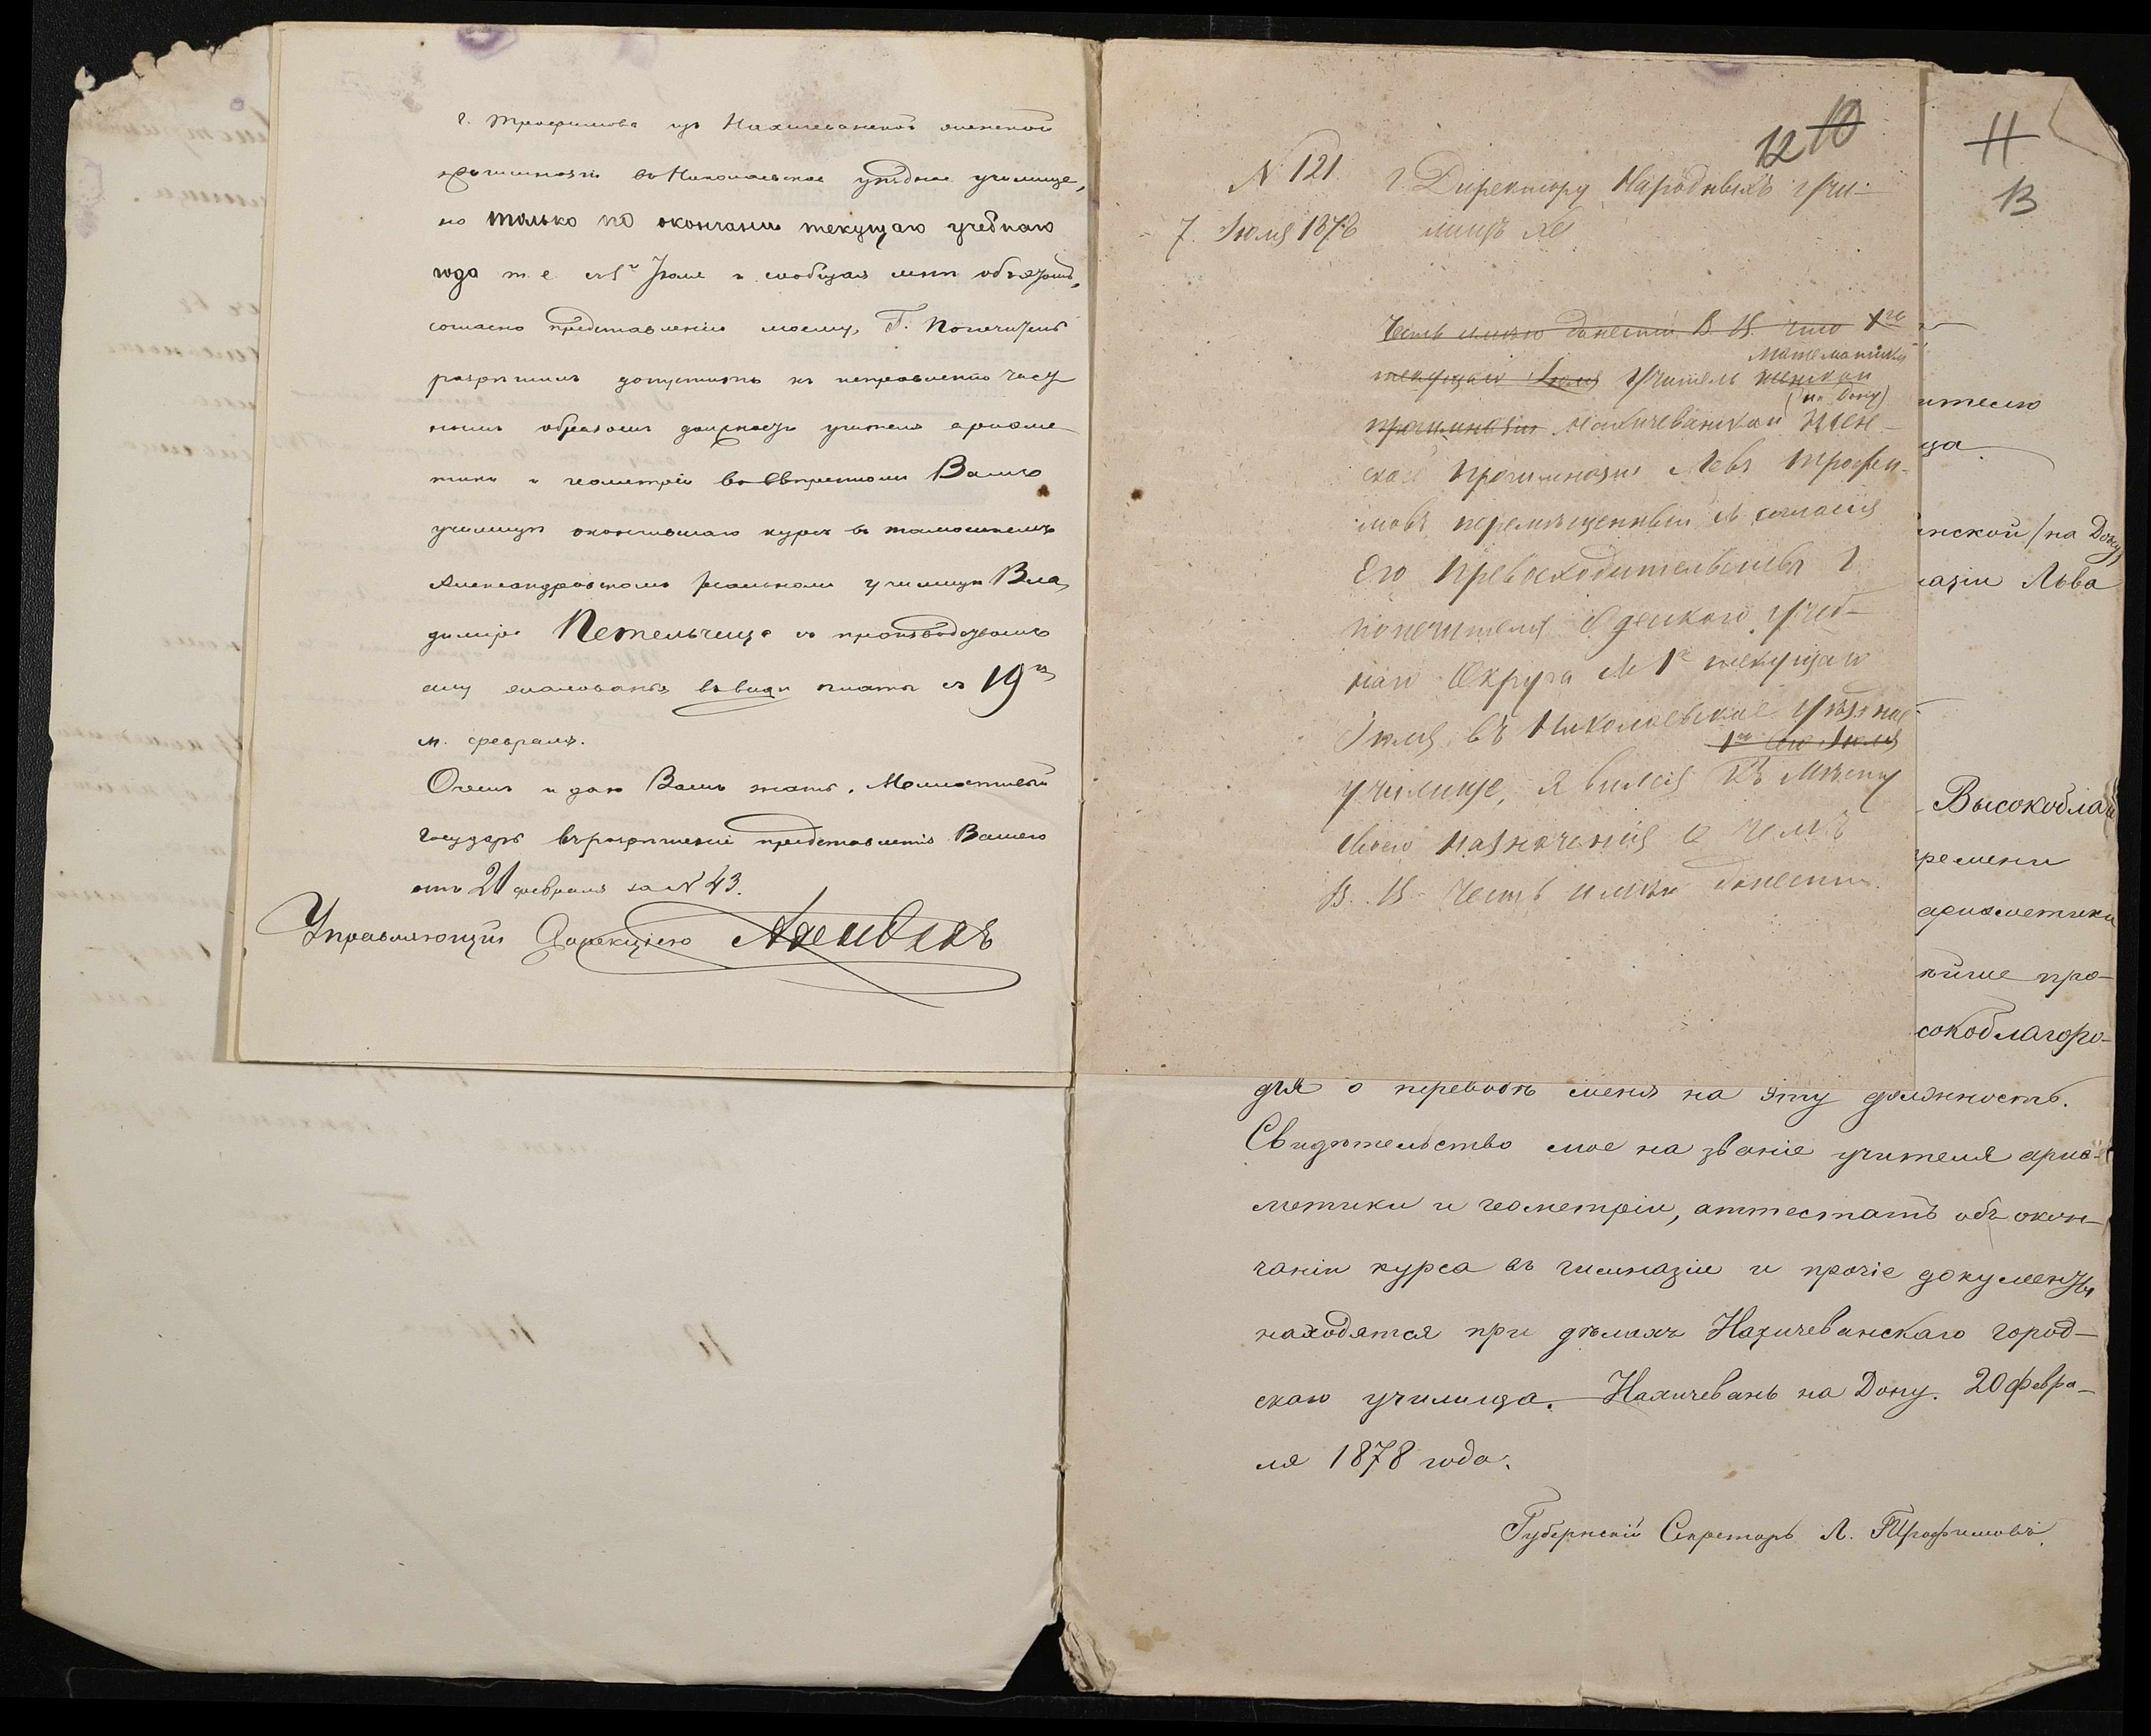 г. Трофимова изъ Нахичеванской женской
прогимназіи въ Николаевское уѣздное училище,
но только по окончаніи текущаго учебнаго
года т. е. съ 1го Іюля и сообщая мнѣ объ этомъ,
согласно представленію моему, Г. Попечитель
разрѣшилъ допустить къ исправленію част
нымъ образомъ должность учителя ариѳме
тики и геометріи въ Ввѣренномъ Вамъ
училищѣ окончившаго курсъ въ тамошнемъ
Александровскомъ реальномъ училищѣ Вла
диміра Петельчица съ производствомъ
ему жалованья въ видѣ платы съ 19го
м. февраля.
О чемъ и даю Вамъ знать, Милостивый
Государь въ разрѣшеніе представленія Вашего
отъ 21 февраля за N 43.
Управляющій Дирекціею
12 10
N 121.
7 Іюля 1878
г. Директору Народныхъ Учи-
лищъ Хе
Честь имѣю донести В. В. что 1го
текущаго Іюля Учитель женской
математики
прогимназіи Нахичеванской (на Дону) Жен-
ской Прогимназіи Левъ Трофи-
мовъ перемѣщенный съ согласія
Его Превосходительства Г
попечителя Одесскаго Учеб-
наго Округа съ 1го текущаго
Іюля въ Николаевское Уѣздное
1го сего Іюля
училище, явился къ мѣсту
своего назначенія о чемъ
В. В. честь имѣю донести.
11
13
ителю
ща
нской /на Дону/
назіи Льва
Высокобла
ремени
ариѳметики
йше про-
сокоблагоро-
дія о переводѣ меня на эту должность.
Свидѣтельство мое на званіе учителя ариѳ-
метики и геометріи, аттестатъ объ окон-
чаніи курса въ гимназіи и прочіе документы
находятся при дѣлахъ Нахичеванскаго город-
скаго училища. Нахичевань на Дону. 20 Февра-
ля 1878 года.
Губернскій Секретарь Л. Трофимовъ.